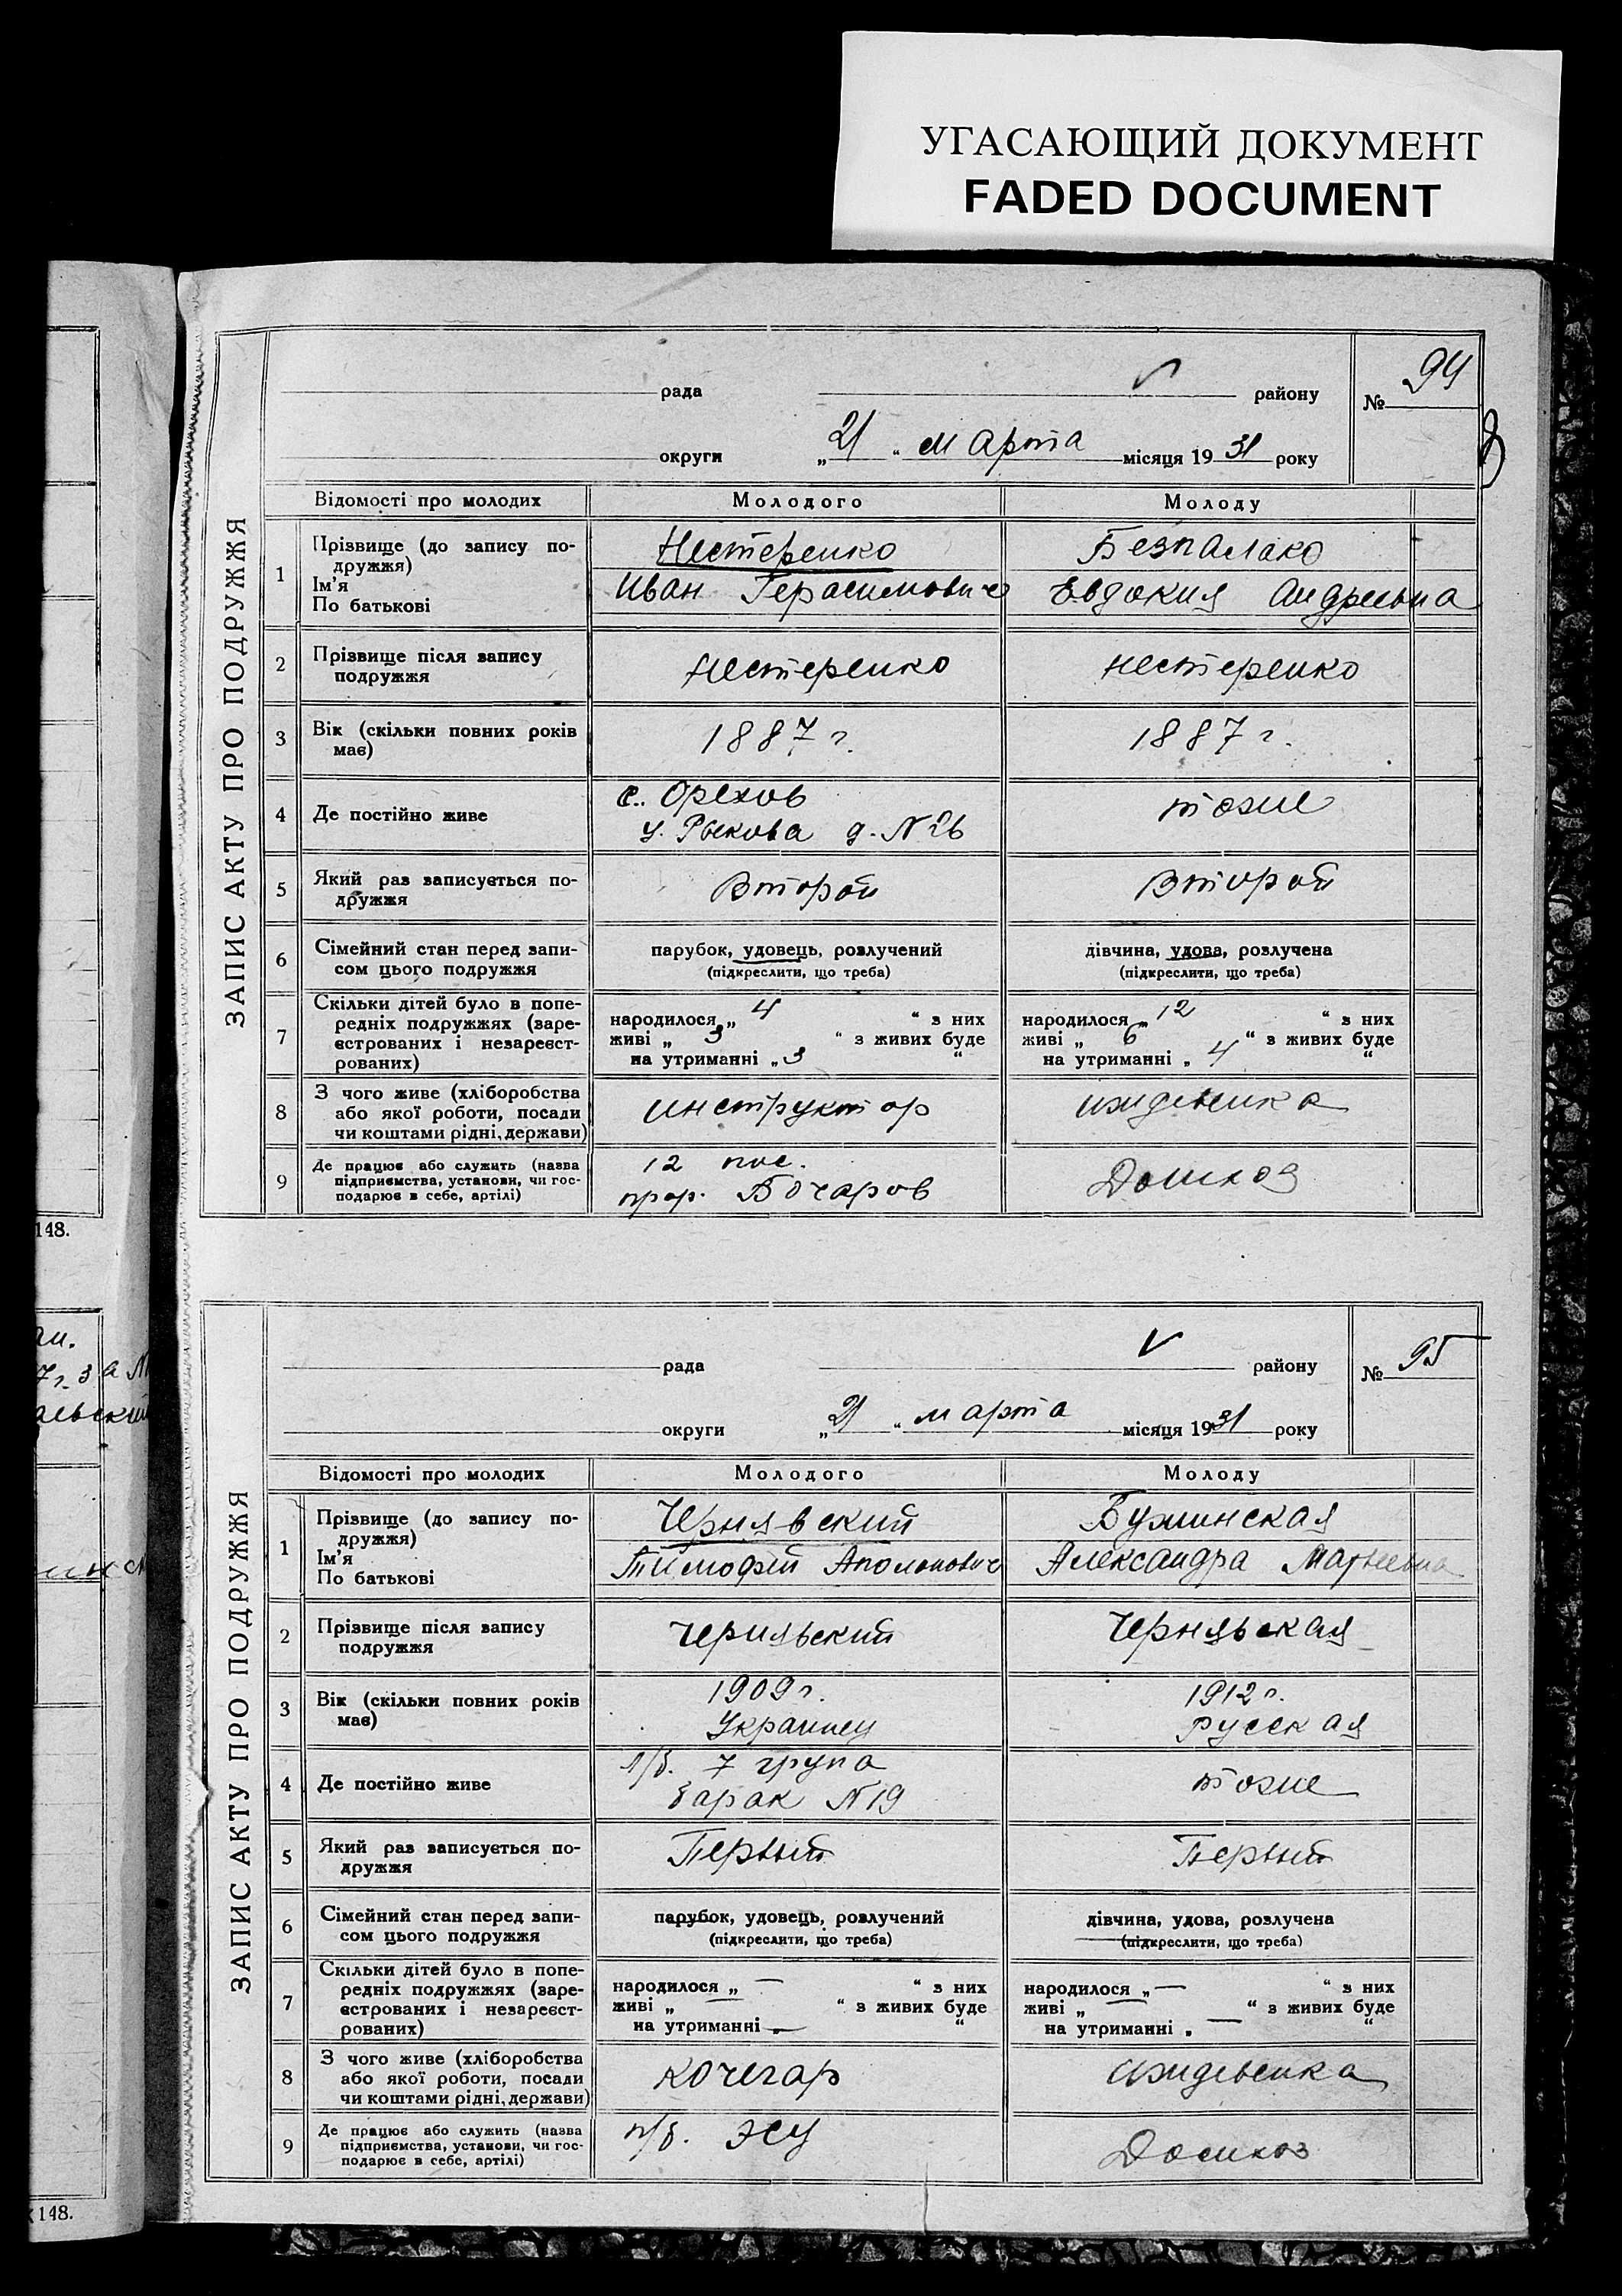 УГАСАЮЩИЙ ДОКУМЕНТ
FADED DOCUMENT
148.
ЗАПИС АКТУ ПРО ПОДРУЖЖЯ
рада
району
№ 94
округи
„21“ марта місяця 1931 року
Відомості про молодих
Молодого
Молоду
1
Прізвище (до запису по-
дружжя)
Ім'я
По батькові
Нестеренко
Иван Герасимович
Безпалако
Евдокия Андреевна
2
Прізвище після запису
подружжя
Нестеренко
Нестеренко
3
Вік (скільки повних років
має)
1887 г.
1887 г.
4
Де постійно живе
с. Орехов
у. Рыкова д. N 26
тоже
5
Який раз записується по-
дружжя
Второй
Второй
6
Сімейний стан перед запи-
сом цього подружжя
парубок, удовець, розлучений
(підкреслити, що треба)
дівчина, удова, розлучена
(підкреслити, що треба)
7
Скільки дітей було в попе-
редніх подружжях (заре-
єстрованих і незареєст-
рованих)
народилося „ 4 “ з них
живі „ 3 “ з живих буде
на утриманні „ 3 “
народилося „ 12 “ з них
живі „ 6 “ з живих буде
на утриманні „ 4 “
8
З чого живе (хліборобства
або якої роботи, посади
чи коштами рідні, держави)
инструктор
иждевенка
9
Де працює або служить (назва
підприємства, установи, чи гос-
подарює в себе, артілі)
12 пос.
прор. Бочаров
Домхоз
148.
ЗАПИС АКТУ ПРО ПОДРУЖЖЯ
рада
району
№ 95
округи
„21“ марта місяця 1931 року
Відомості про молодих
Молодого
Молоду
1
Прізвище (до запису по-
дружжя)
Ім'я
По батькові
Чернявский
Тимофей Аполонович
Бужинская
Александра Матвеевна
2
Прізвище після запису
подружжя
Чернявский
Чернявская
3
Вік (скільки повних років
має)
1909 г.
Украинец
1912 г.
Русская
4
Де постійно живе
л/б. 7 група
барак N 19
тоже
5
Який раз записується по-
дружжя
Первый
Первый
6
Сімейний стан перед запи-
сом цього подружжя
парубок, удовець, розлучений
(підкреслити, що треба)
дівчина, удова, розлучена
(підкреслити, що треба)
7
Скільки дітей було в попе-
редніх подружжях (заре-
єстрованих і незареєст-
рованих)
народилося „ — “ з них
живі „ — “ з живих буде
на утриманні „ — “
народилося „ — “ з них
живі „ — “ з живих буде
на утриманні „ — “
8
З чого живе (хліборобства
або якої роботи, посади
чи коштами рідні, держави)
кочегар
иждевенка
9
Де працює або служить (назва
підприємства, установи, чи гос-
подарює в себе, артілі)
п/б. ЭСУ
Домхоз